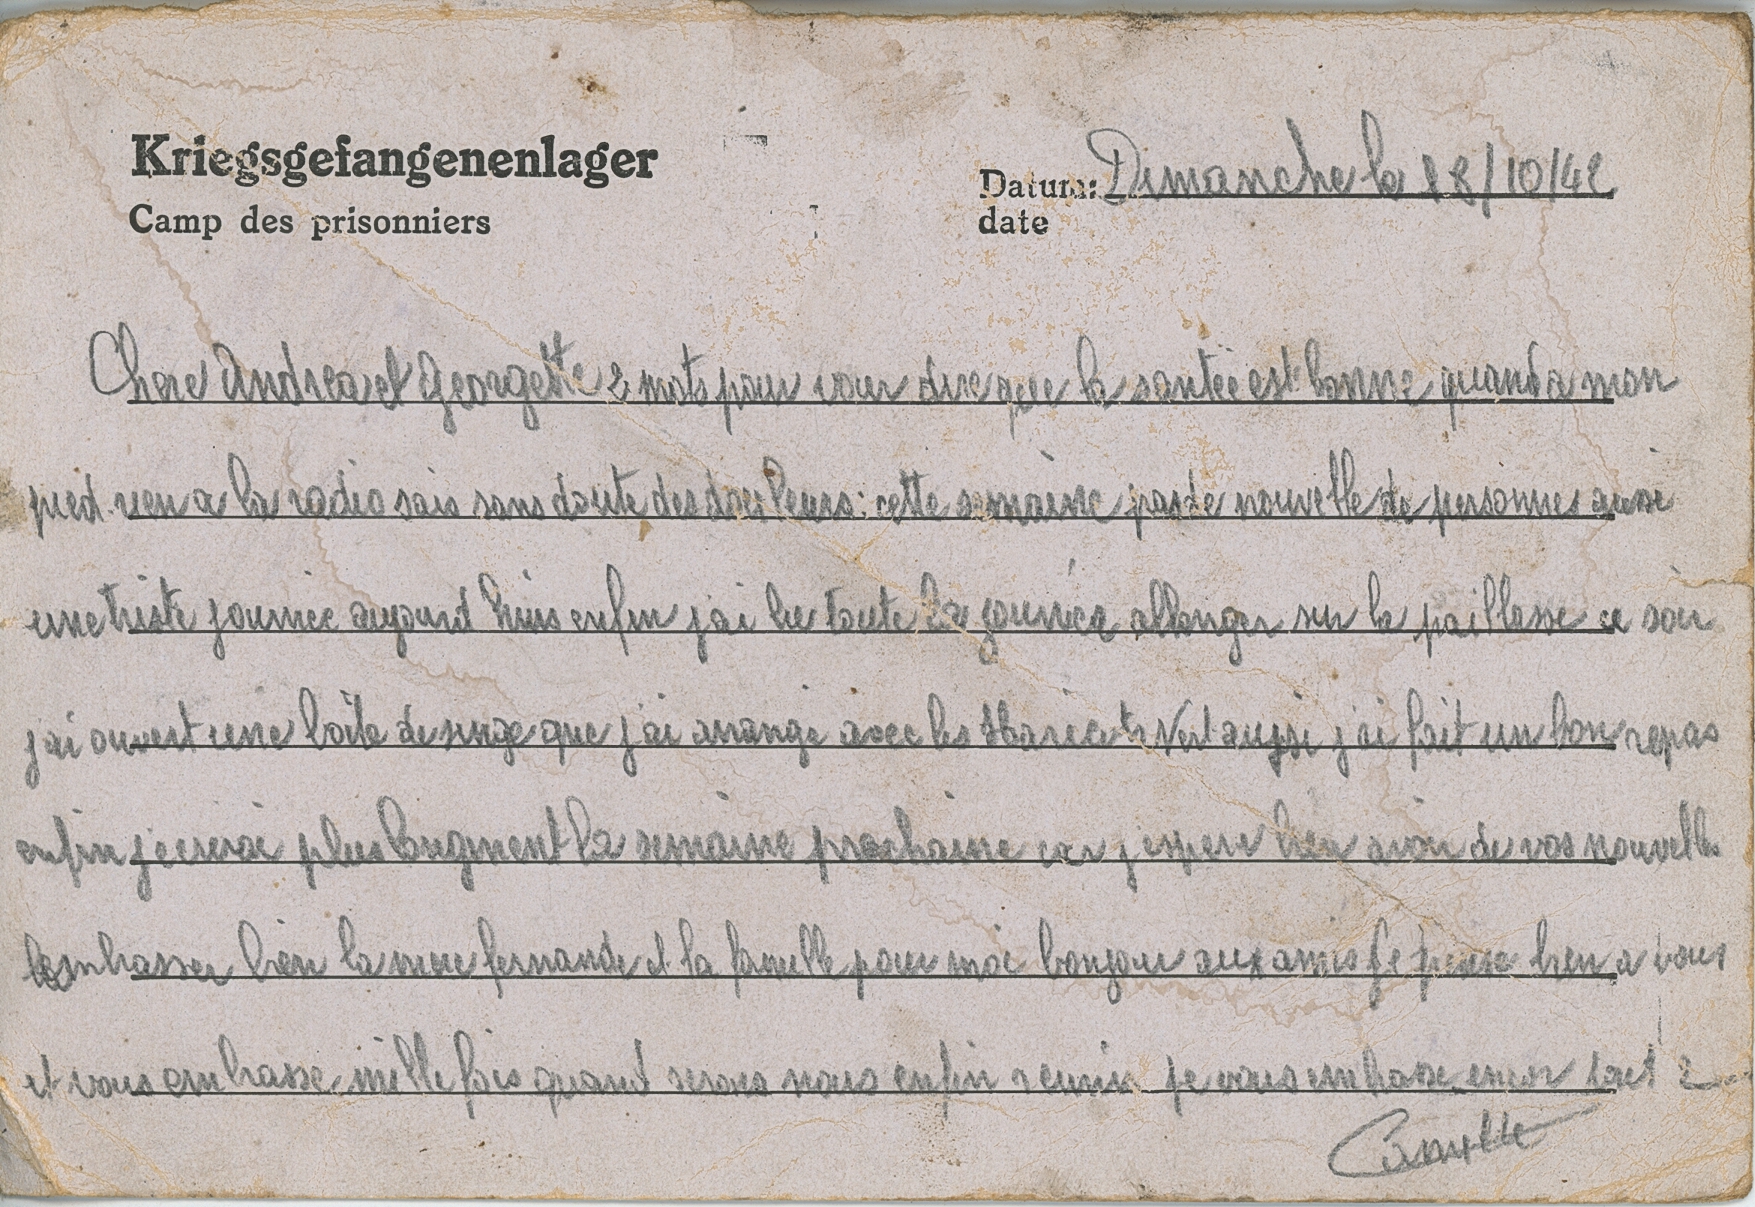 Kriegsgefangenenlager
Camp des prisonniers
Datum: Dimanche le 18/10/42
date
Chere Andrea et Georgette 2 mots pour vour dire que la santée est bonne quand a mon
pied rien a la radio mais sans doute des douleurs: cette semaine pas de nouvelle de personnes aussi
une triste journiée aujourd huis enfin j'ai lu toute la journiée allonger sur la paillasse ce soir
j'ai ouvert une boite de singe que j'ai arrangé avec les Haricots Vert aussi j'ai fait un bon repas
enfin j'ecrirai plus longment la semaine prochaine car j'espere bien avoir de vos nouvelles
embrasser bien la mere fernande et la famille pour moi bonjour aux amis Je pense bien a vous
et vous embrasse mille fois quand serons nous enfin reunis je vous embrasse encor tout 2